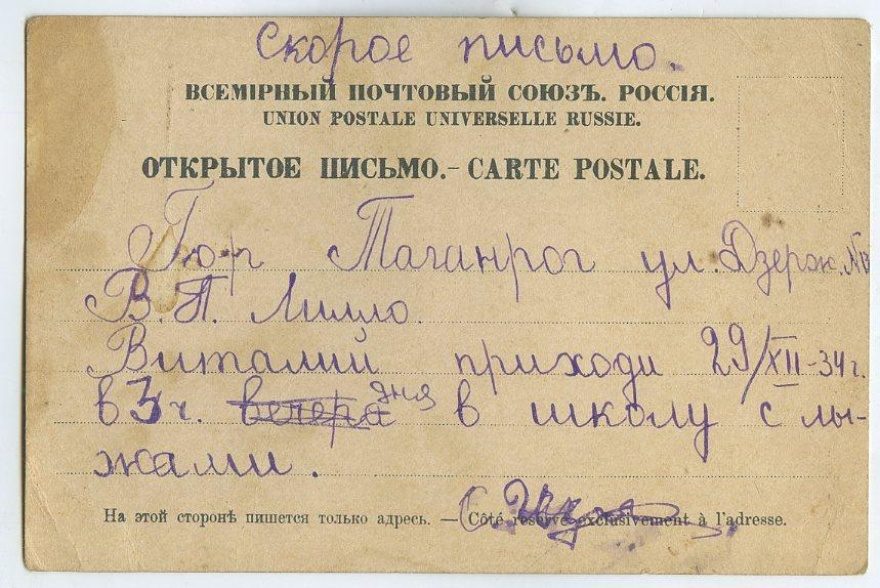 Скорое письмо.
ВСЕМІРНЫЙ ПОЧТОВЫЙ СОЮЗЪ. РОССІЯ.
UNION POSTALE UNIVERSELLE RUSSIE.
ОТКРЫТОЕ ПИСЬМО.- CARTE POSTALE.
Таганрог ул. Дзерж.
В.П. Лилло.
Виталий приходи 29/XII-34 г.
в 3 ч. вечера дня в школу с лы-
жами.
На этой сторонѣ пишется только адресъ. — Côté réservé exclusivement à l'adresse.